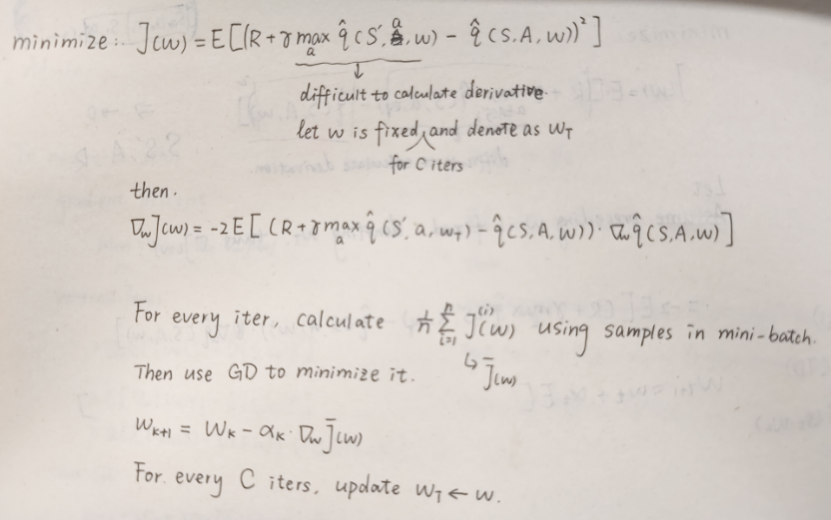 minimize: J(w) = E[(R + γ max_a q̂(S', a, w) - q̂(S, A, w))²]
difficult to calculate derivative.
let w is fixed and denote as w_T
for C iters
then.
∇_w J(w) = -2 E[(R + γ max_a q̂(S', a, w_T) - q̂(S, A, w)) · ∇_w q̂(S, A, w)]
For every iter, calculate 1/n Σ_{i=1}^{n} J^{(i)}(w) using samples in mini-batch.
↳ J̄(w)
Then use GD to minimize it.
w_{k+1} = w_k - α_k · ∇_w J̄(w)
For every C iters, update w_T ← w.